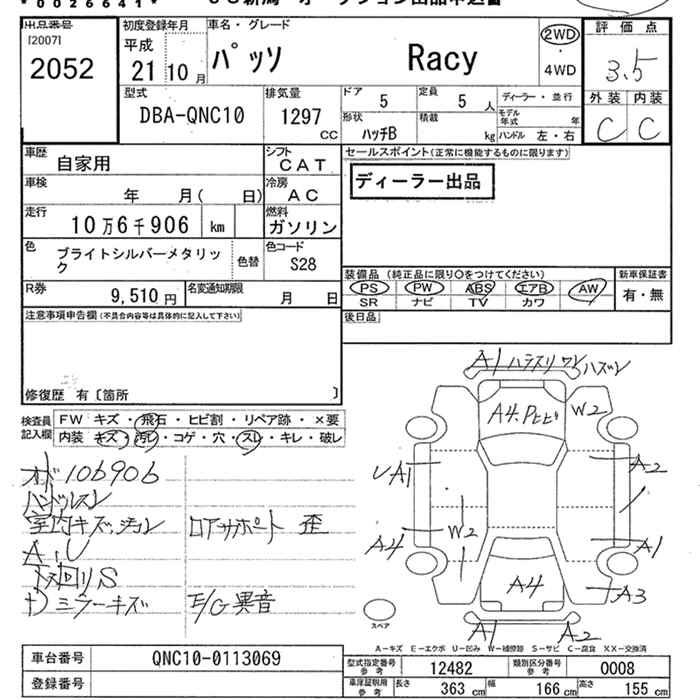 *0026641*
出品番号 [2007] 2052
初度登録年月 平成 21 10 月
車名・グレード パッソ Racy
2WD ・ 4WD
評価点 3.5
外装 内装 C C
型式 DBA-QNC10
排気量 1297 CC
ドア 5 定員 5 人
形状 ハッチB 積載 kg
ディーラー・並行
モデル年式 年
ハンドル 左・右
車歴 自家用
シフト CAT
車検 年 月( 日)
冷房 AC
走行 10万6千906 km
燃料 ガソリン
色 ブライトシルバーメタリック
色替
色コード S28
R券 9,510 円
名変通知期限 月 日
セールスポイント(正常に機能するものに限ります)
ディーラー出品
装備品(純正品に限り○をつけてください)
PS PW ABS エアB AW
SR ナビ TV カワ
新車保証書 有・無
後日品
注意事項申告欄(不具合内容等は具体的に記入して下さい)
修復歴 有〔箇所 〕
検査員記入欄
FW キズ・飛石・ヒビ割・リペア跡・×要
内装 キズ・汚レ・コゲ・穴・スレ・キレ・破レ
106906
室内キズ
A.U
下回りS
ミラーキズ
ロアサポート 歪
E/G異音
A1
A4.
W2
A1
A2
W2
A4
A1
A4
A3
A1 A2
スペア
A-キズ E-エクボ U-凹み W-補修跡 S-サビ C-腐食 XX-交換済
車台番号 QNC10-0113069
登録番号
型式指定番号 参考 12482
類別区分番号 参考 0008
車庫証明用 参考 長さ 363 cm 幅 166 cm 高さ 155 cm